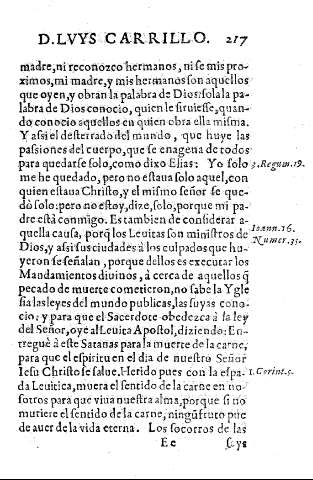 D. LVYS CARRILLO. 217
madre, ni reconozco hermanos, ni se mis pro-
ximos, mi madre, y mis hermanos son aquellos
que oyen, y obran la palabra de Dios: sola la pa-
labra de Dios conocio, quien le siruiesse, quan-
do conocio aquellos en quien obra ella misma.
Y assi el desterrado del mundo, que huye las
passiones del cuerpo, que se enagena de todos
para quedarse solo, como dixo Elias: Yo solo
3. Regum. 19.
me he quedado, pero no estaua solo aquel, con
quien estaua Christo, y el mismo señor se que-
dó solo: pero no estoy, dize, solo, porque mi pa-
dre está conmigo. Es tambien de considerar a-
quella causa, porq̃ los Leuitas son ministros de
Ioann. 16.
Numer. 35.
Dios, y assi sus ciudades à los culpados que hu-
yeron se señalan, porque dellos es executar los
Mandamientos diuinos, à cerca de aquellos q̃
pecado de muerte cometieron, no sabe la Ygle
sia las leyes del mundo publicas, las suyas cono-
cio: y para que el Sacerdote obedezca à la ley
del Señor, oye al Leuita Apostol, diziendo: En-
treguè à este Satanas para la muerte de la carne,
para que el espiritu en el dia de nuestro Señor
Iesu Christo se salue. Herido pues con la espa-
1. Corint. 5.
da Leuitica, muera el sentido de la carne en no-
sotros para que viua nuestra alma, porque si no
muriere el sentido de la carne, ningũ fruto pue
de auer de la vida eterna. Los socorros de las
Ee